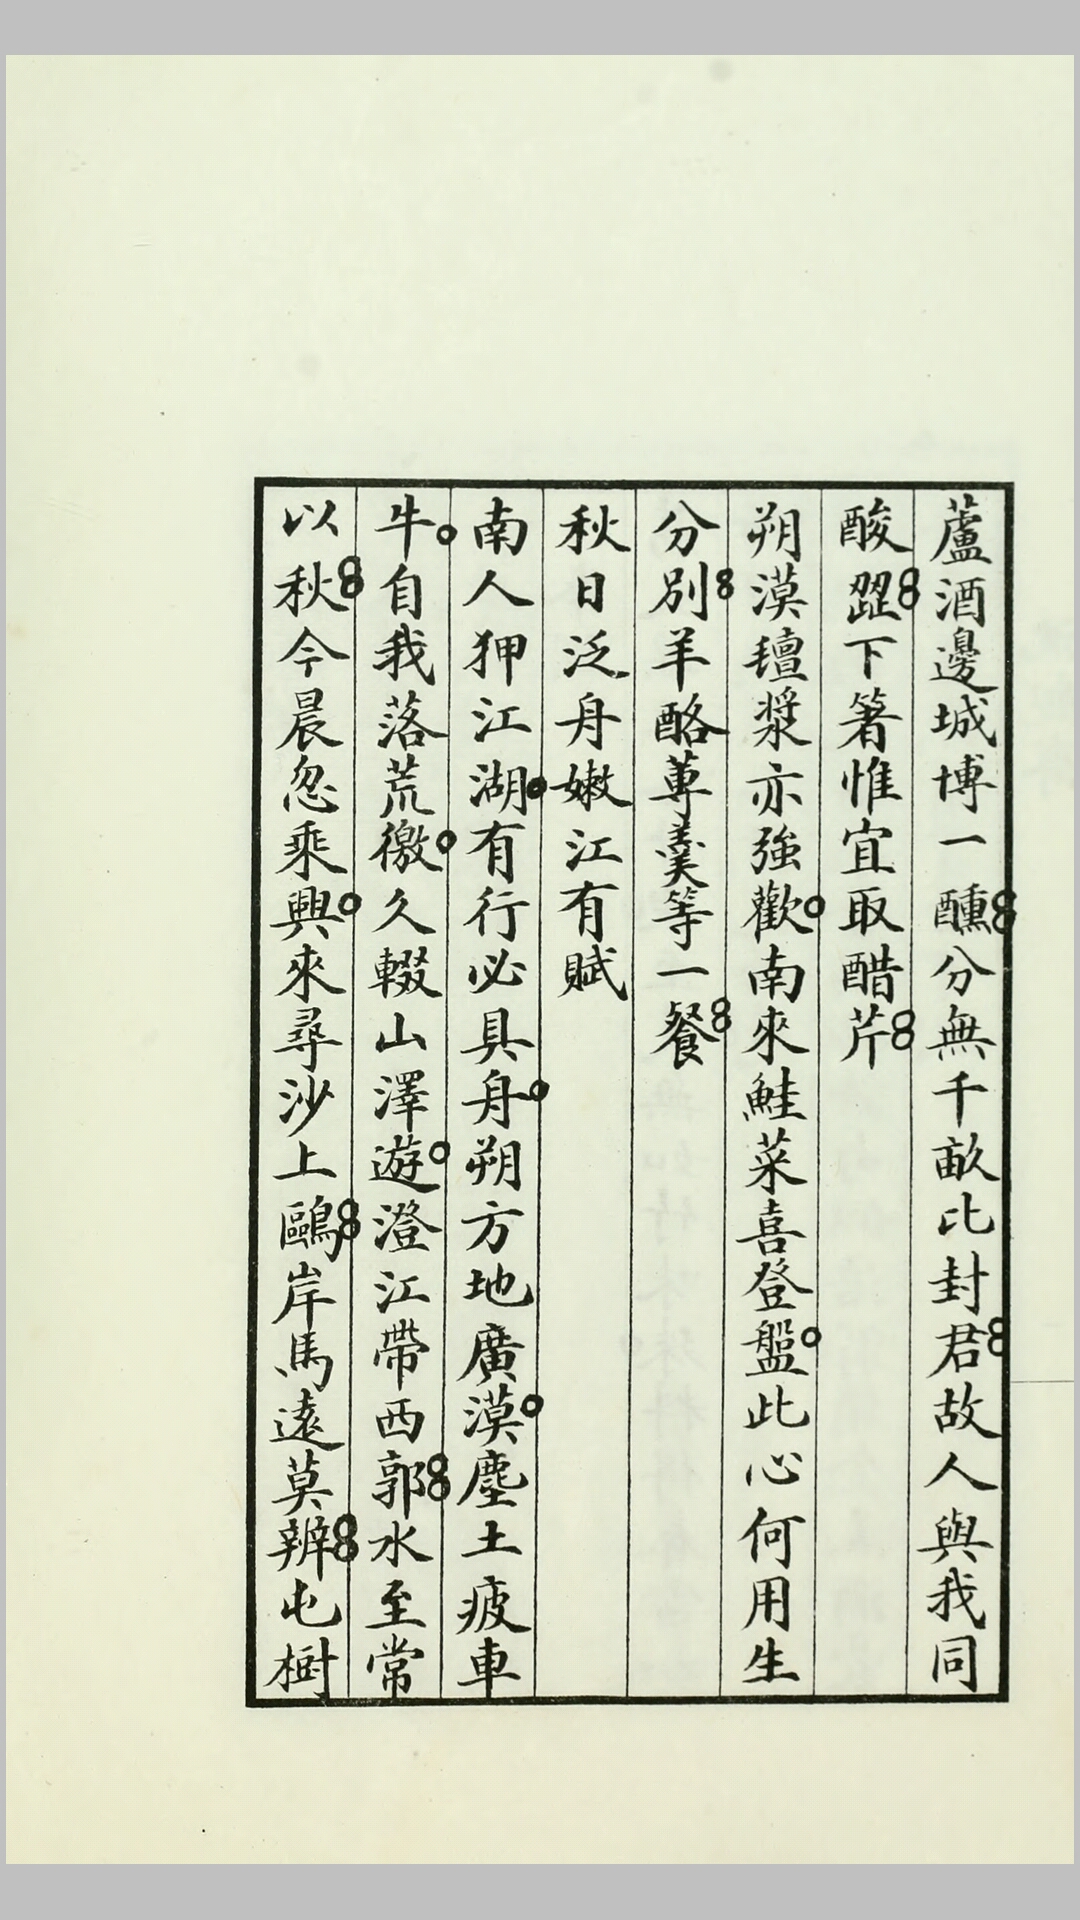 蘆酒邊城博一醺分無千畝比封君故人與我同
酸澀下箸惟宜取醋芹
朔漠氊漿亦強歡南來鮭菜喜登盤此心何用生
分別羊酪蓴羹等一餐
秋日泛舟嫩江有賦
南人狎江湖有行必具舟朔方地廣漠塵土疲車
牛自我落荒徼久輟山澤遊澄江帶西郭水至常
以秋今晨忽乘興來尋沙上鷗岸馬遠莫辨屯樹